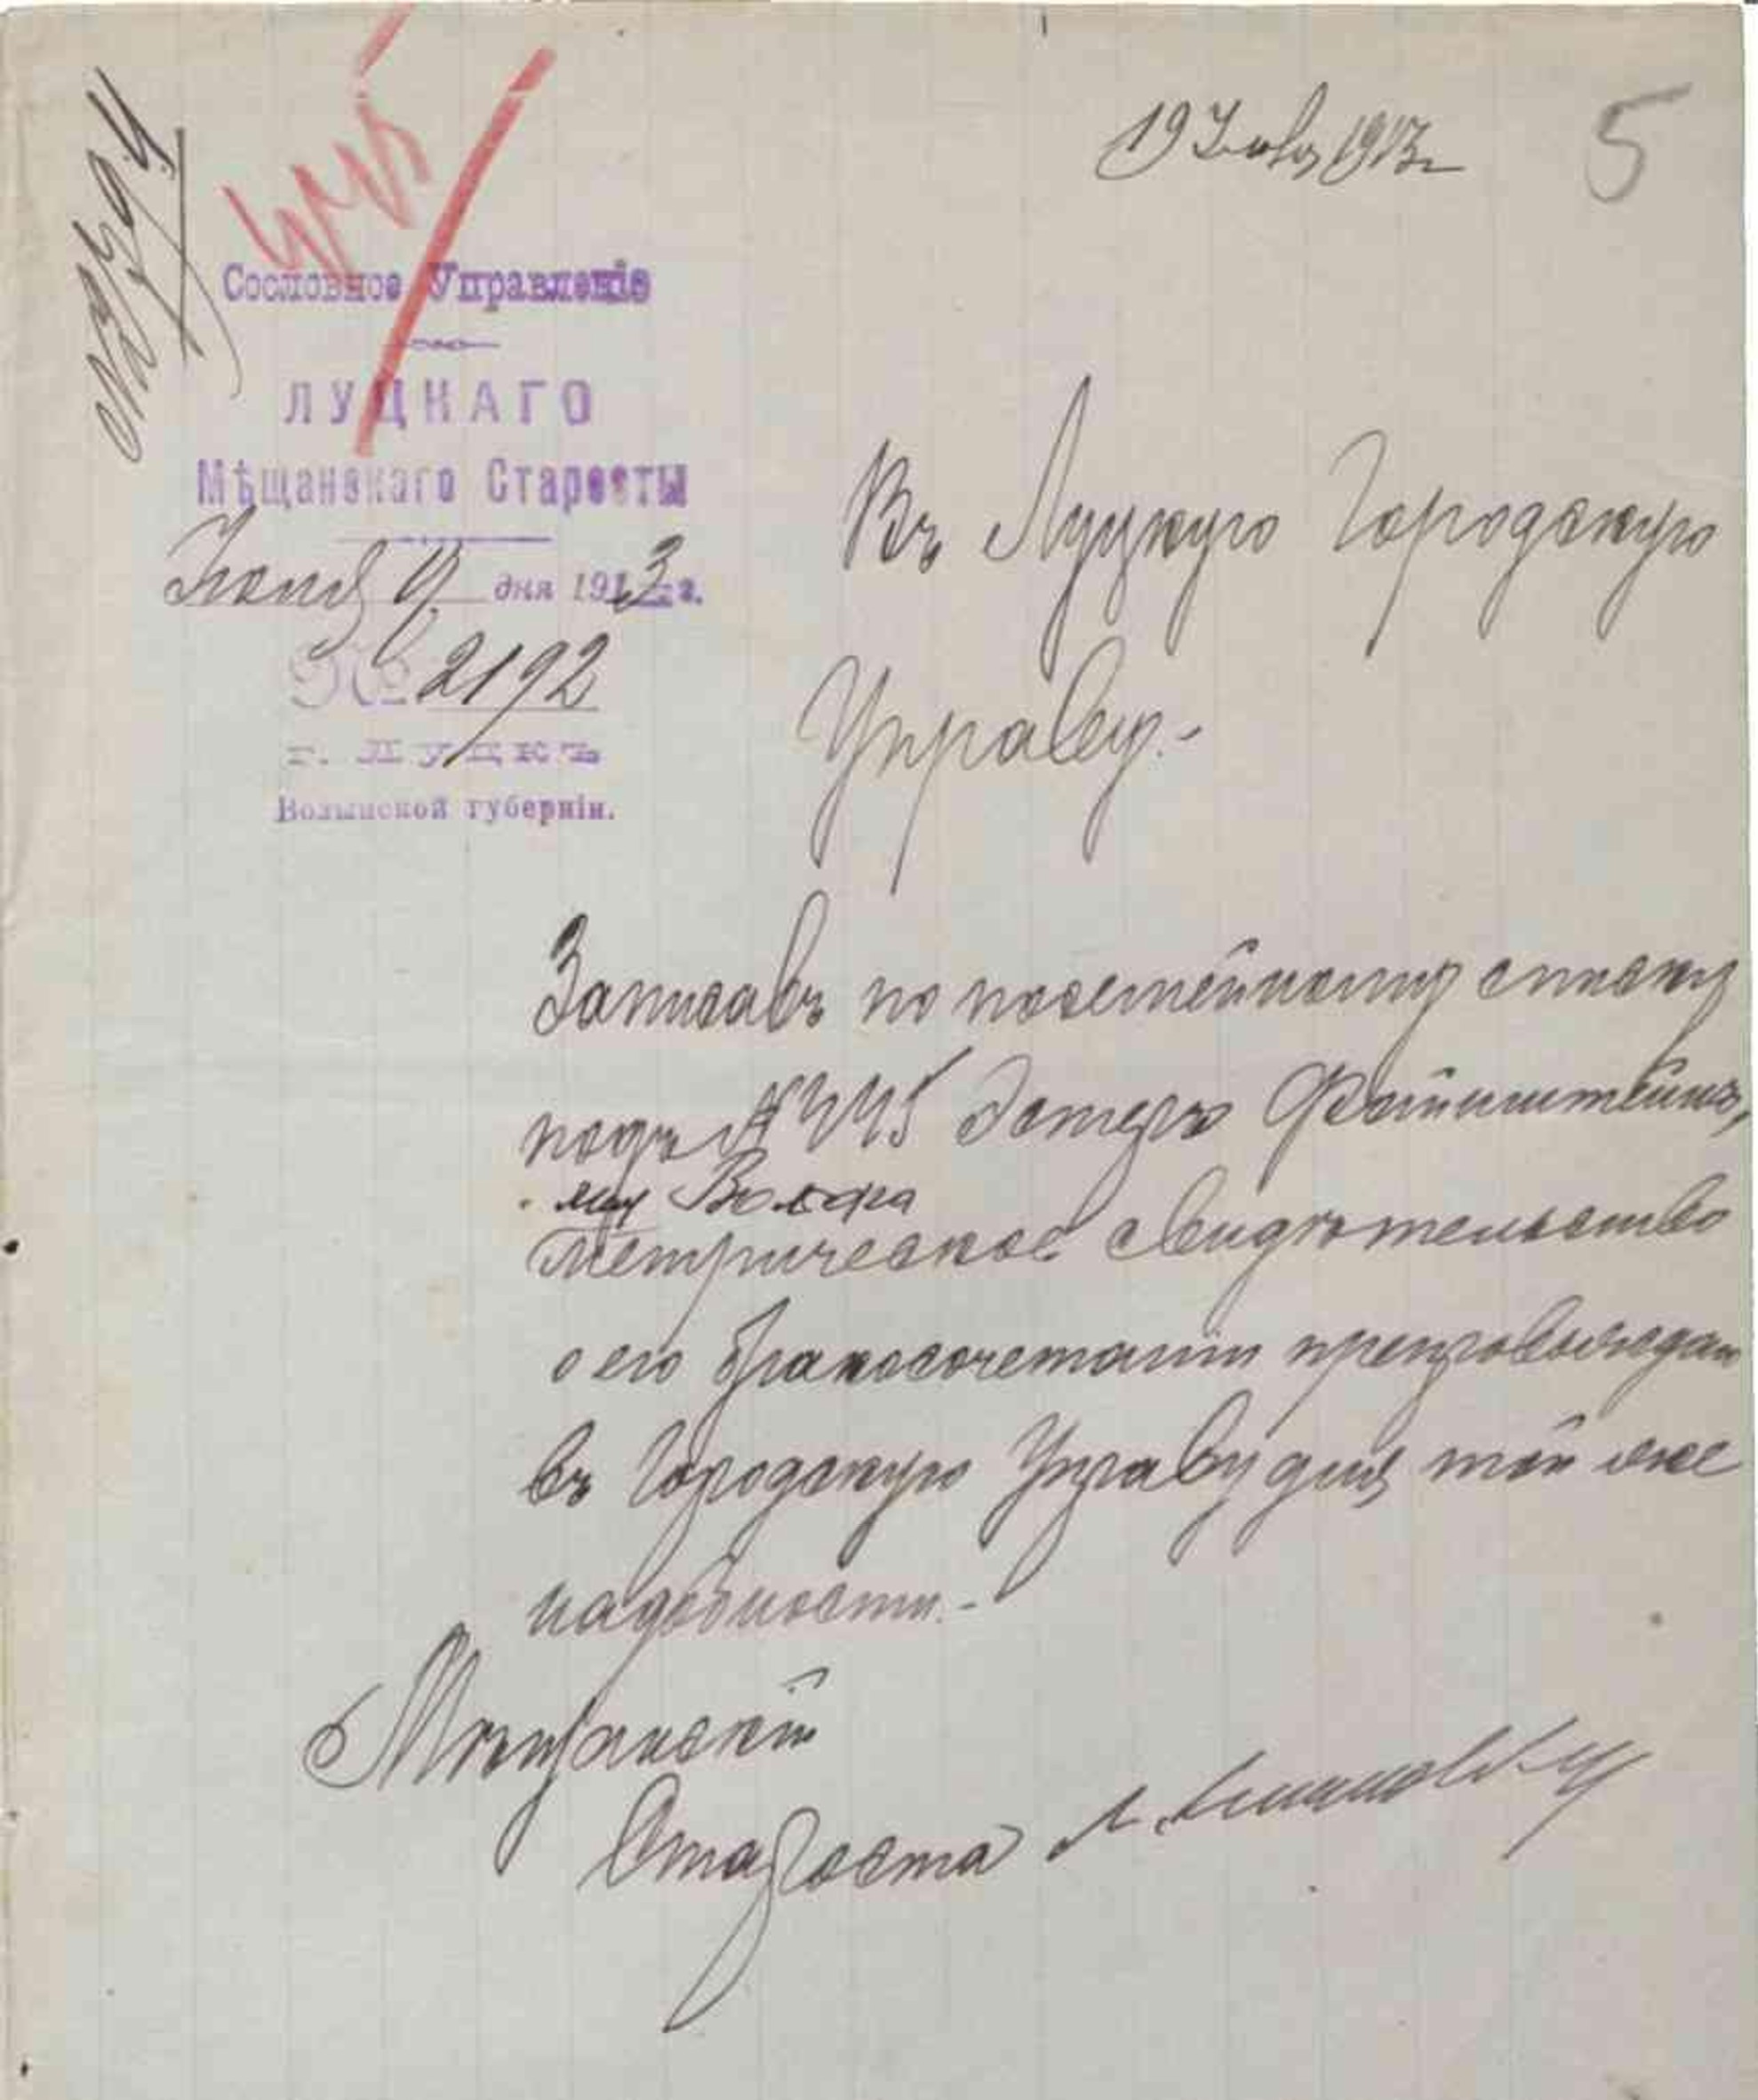 5
Сословное Управленіе
ЛУЦКАГО
Мѣщанскаго Старосты
9 дня 1913 г.
№ 2192
г. Луцкъ
Волынской губерніи.
Въ Луцкую Городскую
Управу.-
Записавъ по посемейному списку
подъ № 445 Эстеру Файнштейнъ,
метрическое свидѣтельство
о его бракосочетаніи препровождаю
въ Городскую Управу для той же
надобности.-
Мѣщанскій
Староста